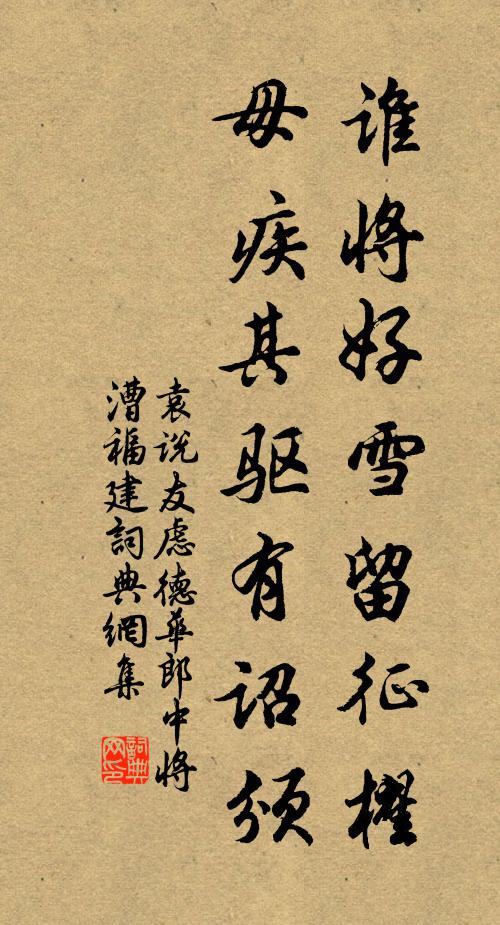 谁将好雪留征櫂
毋疾其驱有诏颁
袁说友虑德華郎中将
漕福建詞典網集
詞典网印